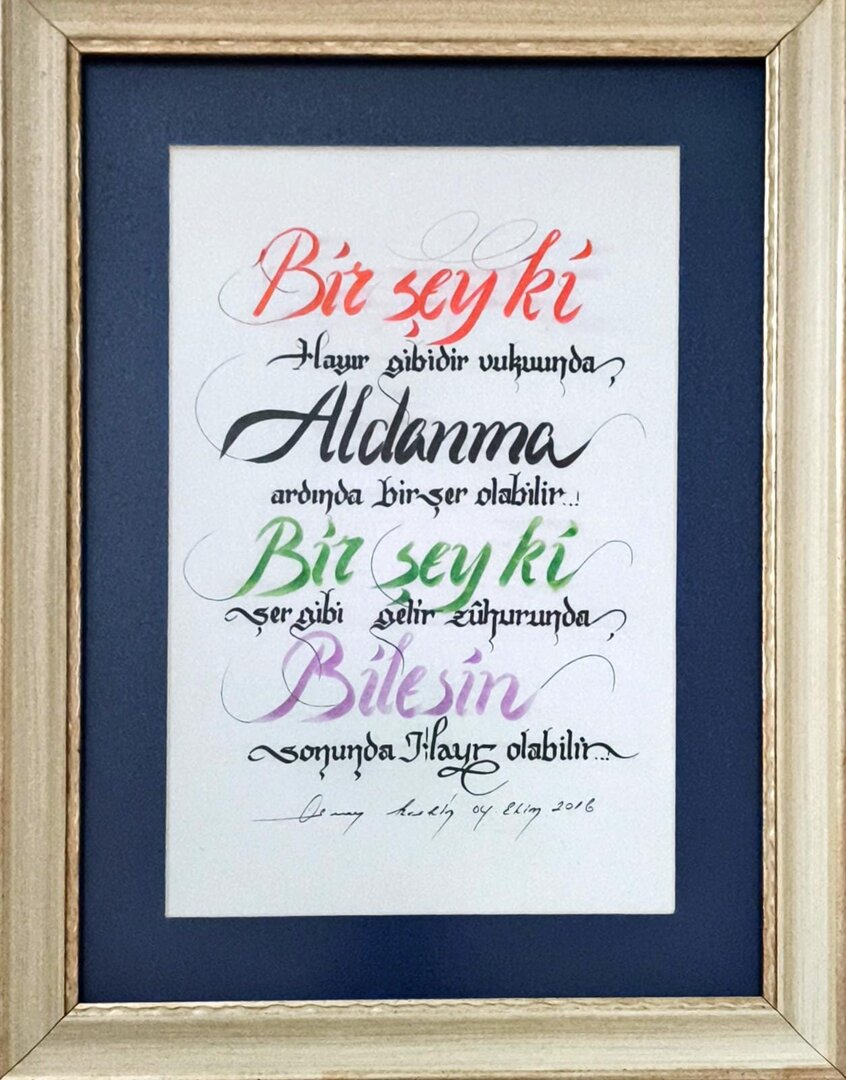 Bir şey ki
Hayır gibidir vukuunda,
Aldanma
ardında bir şer olabilir...!
Bir şey ki
Şer gibi gelir zûhurunda,
Bilesin
sonunda Hayr olabilir...
04 Ekim 2016